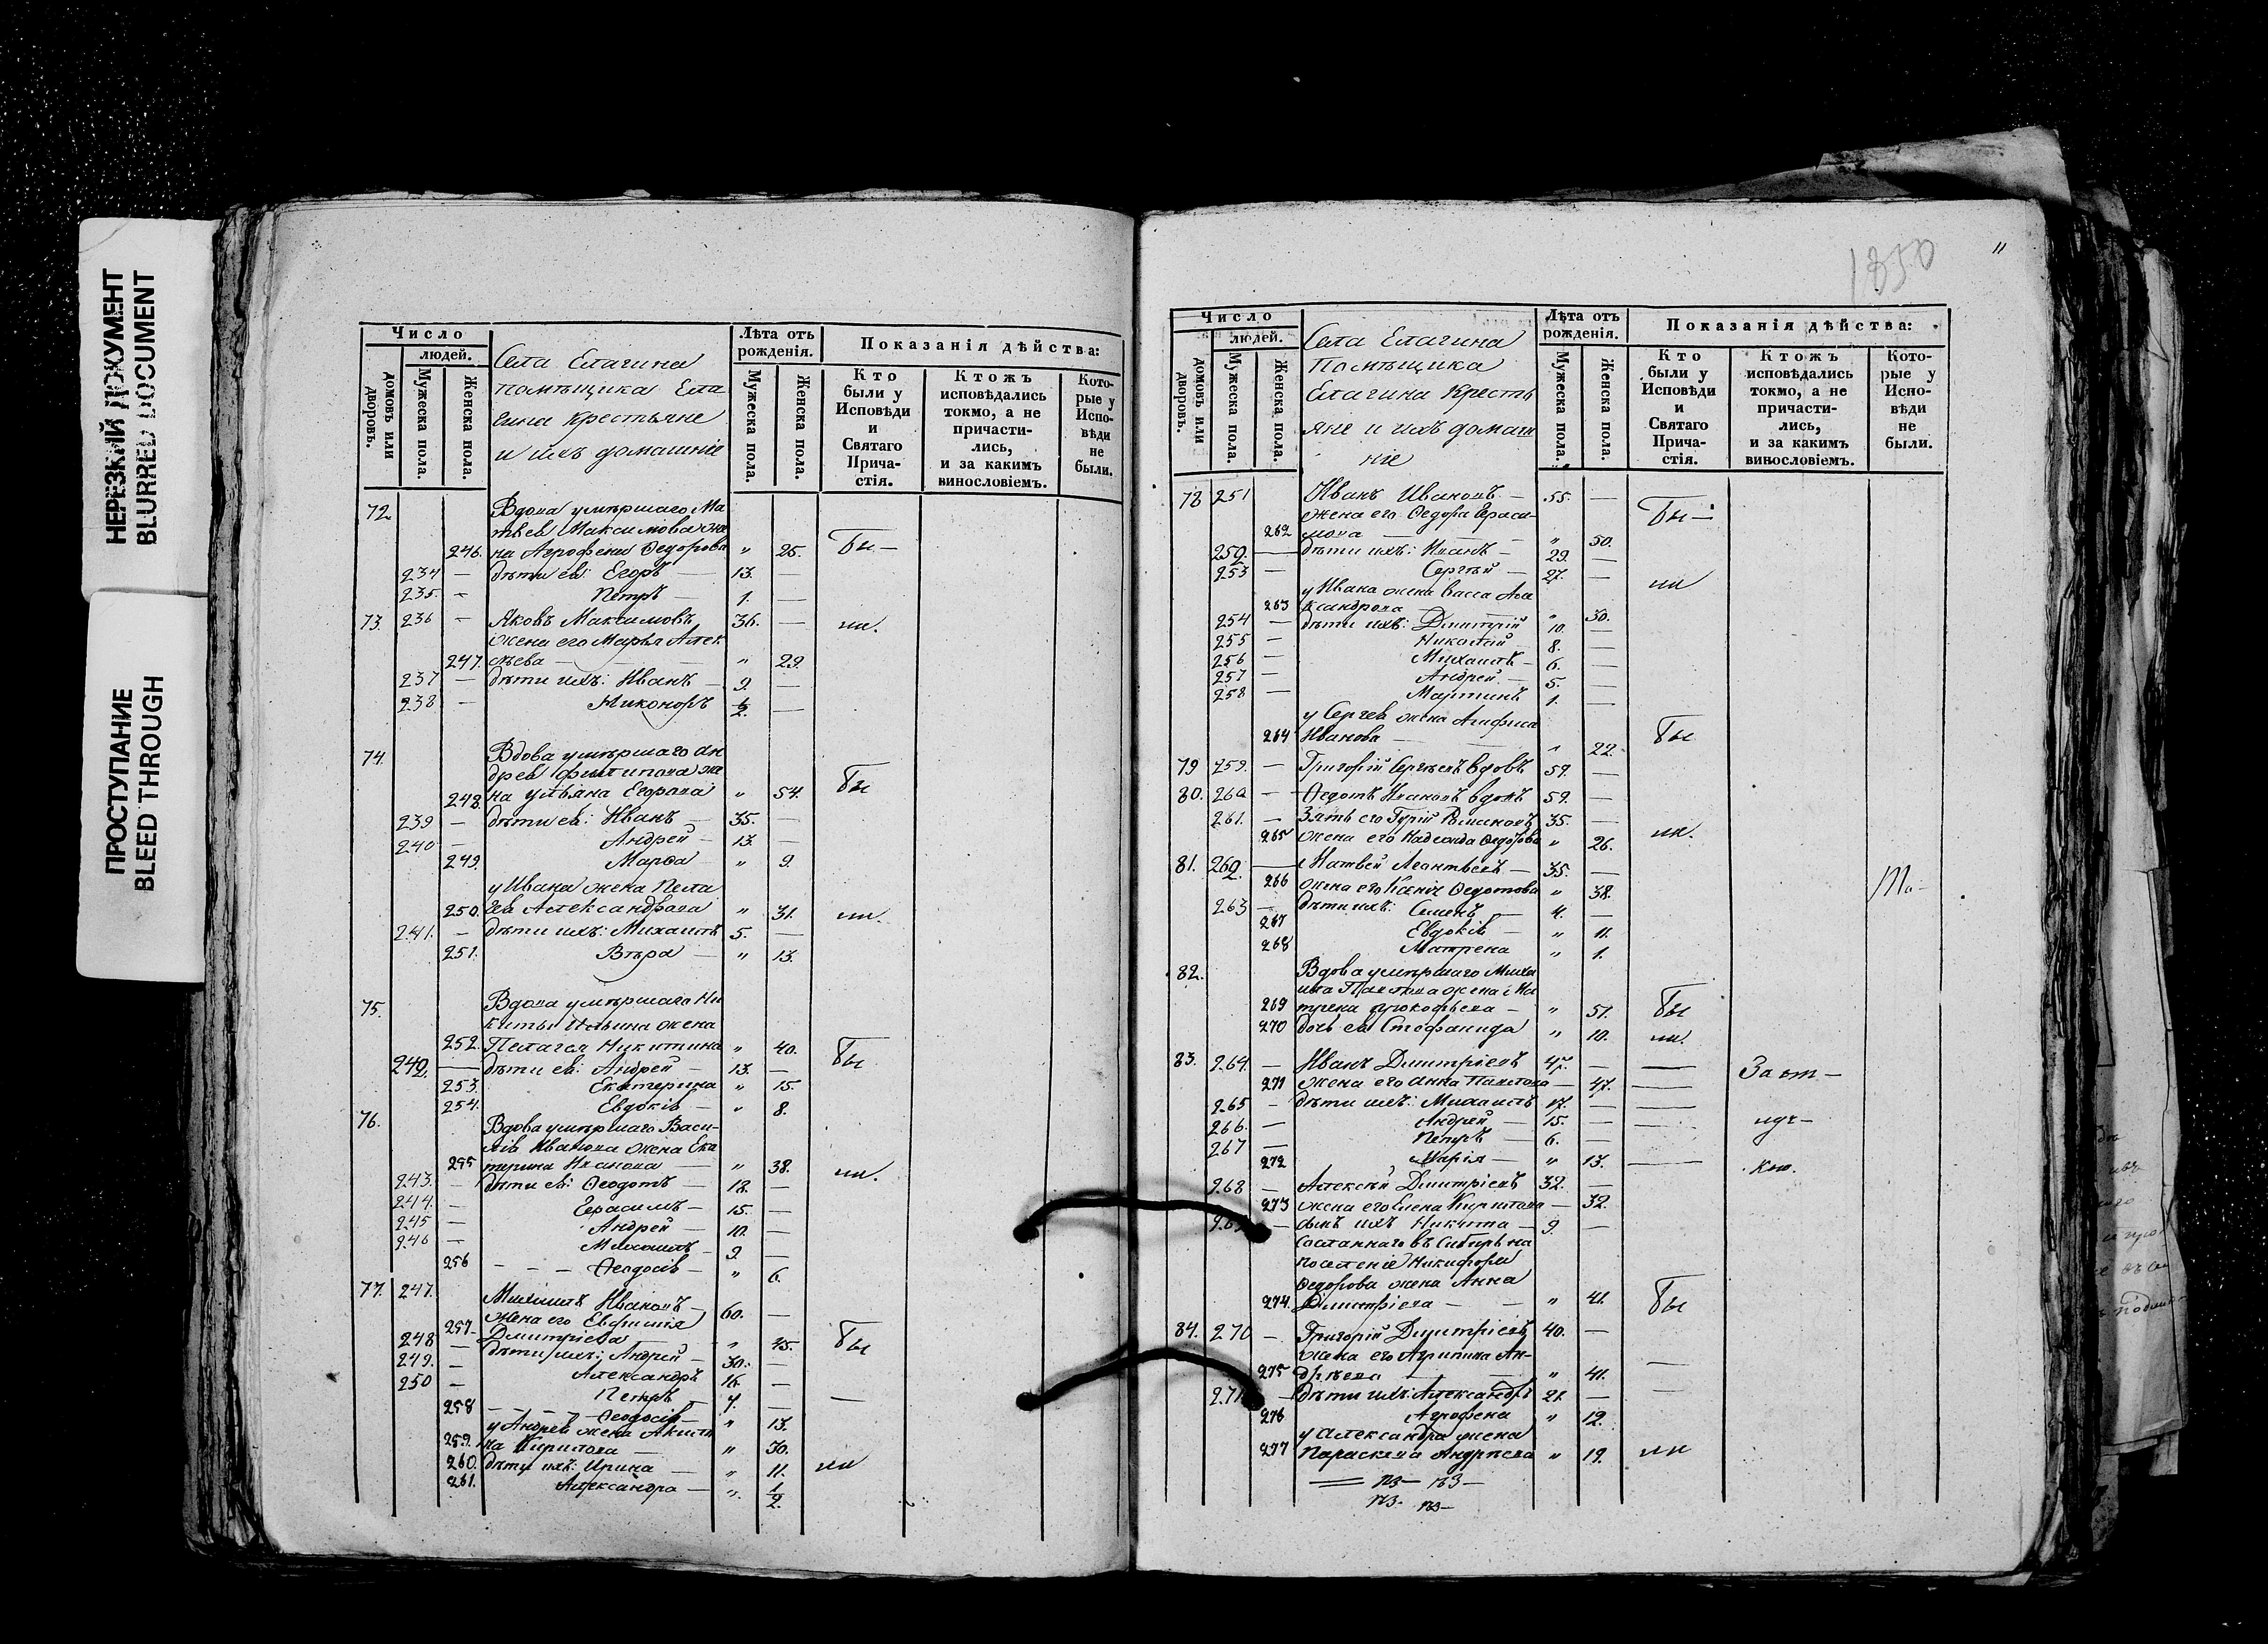 НЕРЕЗКИЙ ДОКУМЕНТ
BLURRED DOCUMENT
ПРОСТУПАНИЕ
BLEED THROUGH
Число
людей.
домовъ или дворовъ.
Мужеска пола.
Женска пола.
Села Елагина
помѣщика Ела
гина крестьяне
и ихъ домашніе
Лѣта отъ рожденія.
Мужеска пола.
Женска пола.
Показанія дѣйства:
Кто были у Исповѣди и Святаго Прича-стія.
Ктожъ исповѣдались токмо, а не причасти-лись, и за какимъ винословіемъ.
Кото-рые у Испо-вѣди не были.
72 Вдова умершаго Ма
твея Максимова же
246. на Агрофена Ѳедорова " 25. Бы—
234 — дѣти ея: Егоръ — 13. —
235. — Петръ — 1. —
73. 236 — Яковъ Максимовъ 36. — ли.
жена его Марья Алек
247. сѣева — " 29.
237 — дѣти ихъ: Иванъ — 9. —
238 — Никоноръ ½. —
74. Вдова умершаго Ан
дрея Филипова же
248. на Ульяна Егорова " 54. Бы
239 — дѣти ея: Иванъ — 35. —
240 — Андрей — 13. —
249. Марѳа — " 9.
у Ивана жена Пела
250. гея Александрова " 31. ли.
241. — дѣти ихъ: Михаилъ 5. —
251. Вѣра — " 13.
75. Вдова умершаго Ни
киты Ильина жена
252. Пелагея Никитина " 40. Бы
242. — дѣти ея: Андрей — 13. —
253. Екатерина " 15
254. Евдокія — " 8.
76. Вдова умершаго Васи-
лія Иванова жена Ека
255 терина Иванова — " 38. ли.
243. — дѣти ея: Ѳеодотъ — 18. —
244. — Герасимъ — 15. —
245 — Андрей — 10. —
246 — Михаилъ — 9. —
256 — — — Ѳеодосія — " 6.
77. 247. Михаилъ Ивановъ — 60. —
жена его Евфимія
257 Дмитріева — " 45. Бы
248 — дѣти ихъ: Андрей — 30. —
249. — Александръ 16. —
250 — Петръ — 7. — —
258 — — — Ѳеодосія — " 13.
у Андрея жена Акили
259. на Кирилова — " 30.
260. дѣти ихъ: Ирина — " 11. ли
261. Александра — " ½.
1850
11
Число
людей.
домовъ или дворовъ.
Мужеска пола.
Женска пола.
Села Елагина
Помѣщика
Елагина кресть
яне и ихъ домаш
ніе
Лѣта отъ рожденія.
Мужеска пола.
Женска пола.
Показанія дѣйства:
Кто были у Исповѣди и Святаго Прича-стія.
Ктожъ исповѣдались токмо, а не причасти-лись, и за какимъ винословіемъ.
Кото-рые у Испо-вѣди не были.
78 251 Иванъ Ивановъ — 55. — Бы—
жена его Ѳедора Гераси-
262 мова — " 50.
252. — дѣти ихъ: Иванъ — 29. —
253 — Сергѣй — 27. — ли
у Ивана жена Васса Але
263 ксандрова — " 30.
254 — дѣти ихъ: Дмитрій 10. —
255 — Николай 8. —
256 — Михаилъ — 6. —
257 — Андрей — 5. —
258 — Мартинъ 1. —
у Сергея жена Анфиса
264 Иванова — " 22. Бы
79 259. — Григорій Сергѣевъ вдовъ 59. —
80. 260 — Ѳедотъ Ивановъ вдовъ 59. —
261. — Зять его Гурій Романовъ 35. —
265 жена его Надежда Ѳедорова " 26. ли.
81. 262. — Матвей Леонтьевъ — 35. —
266 жена его Ксенія Ѳедотова " 38.
263 — дѣти ихъ: Семенъ — 4. —
267 Евдокія — " 11.
268 Матрена " 1.
82. Вдова умершаго Миха
ила Павлова жена Ма
269 трена Прокофьева — " 51. Бы
270 дочь ея Стефанида " 10. ли.
83. 264. — Иванъ Димитріевъ 47. — — За от—
271 жена его Анна Павлова — 47. —
265 — дѣти ихъ: Михаилъ 17. — —
266. — Андрей — 15. — луч—
267 — Петръ — 6. —
272 Марія — " 13. — кою.
268 — Алексѣй Димитріевъ 32. —
273 жена его Елена Кирилова — 32.
269 — сынъ ихъ Никита — 9. —
Сосланнаго въ Сибирь на
поселеніе Никифора
Ѳедорова жена Анна
274. Димитріева — — " 41. Бы
84. 270 — Григорій Димитріевъ 40. —
жена его Агрипина Ан-
275 дрѣева — " 41. —
271 — дѣти ихъ: Александръ 21. — —
276 Агрофена " 12.
у Александра жена
277 Параскева Андрѣева " 19. ли